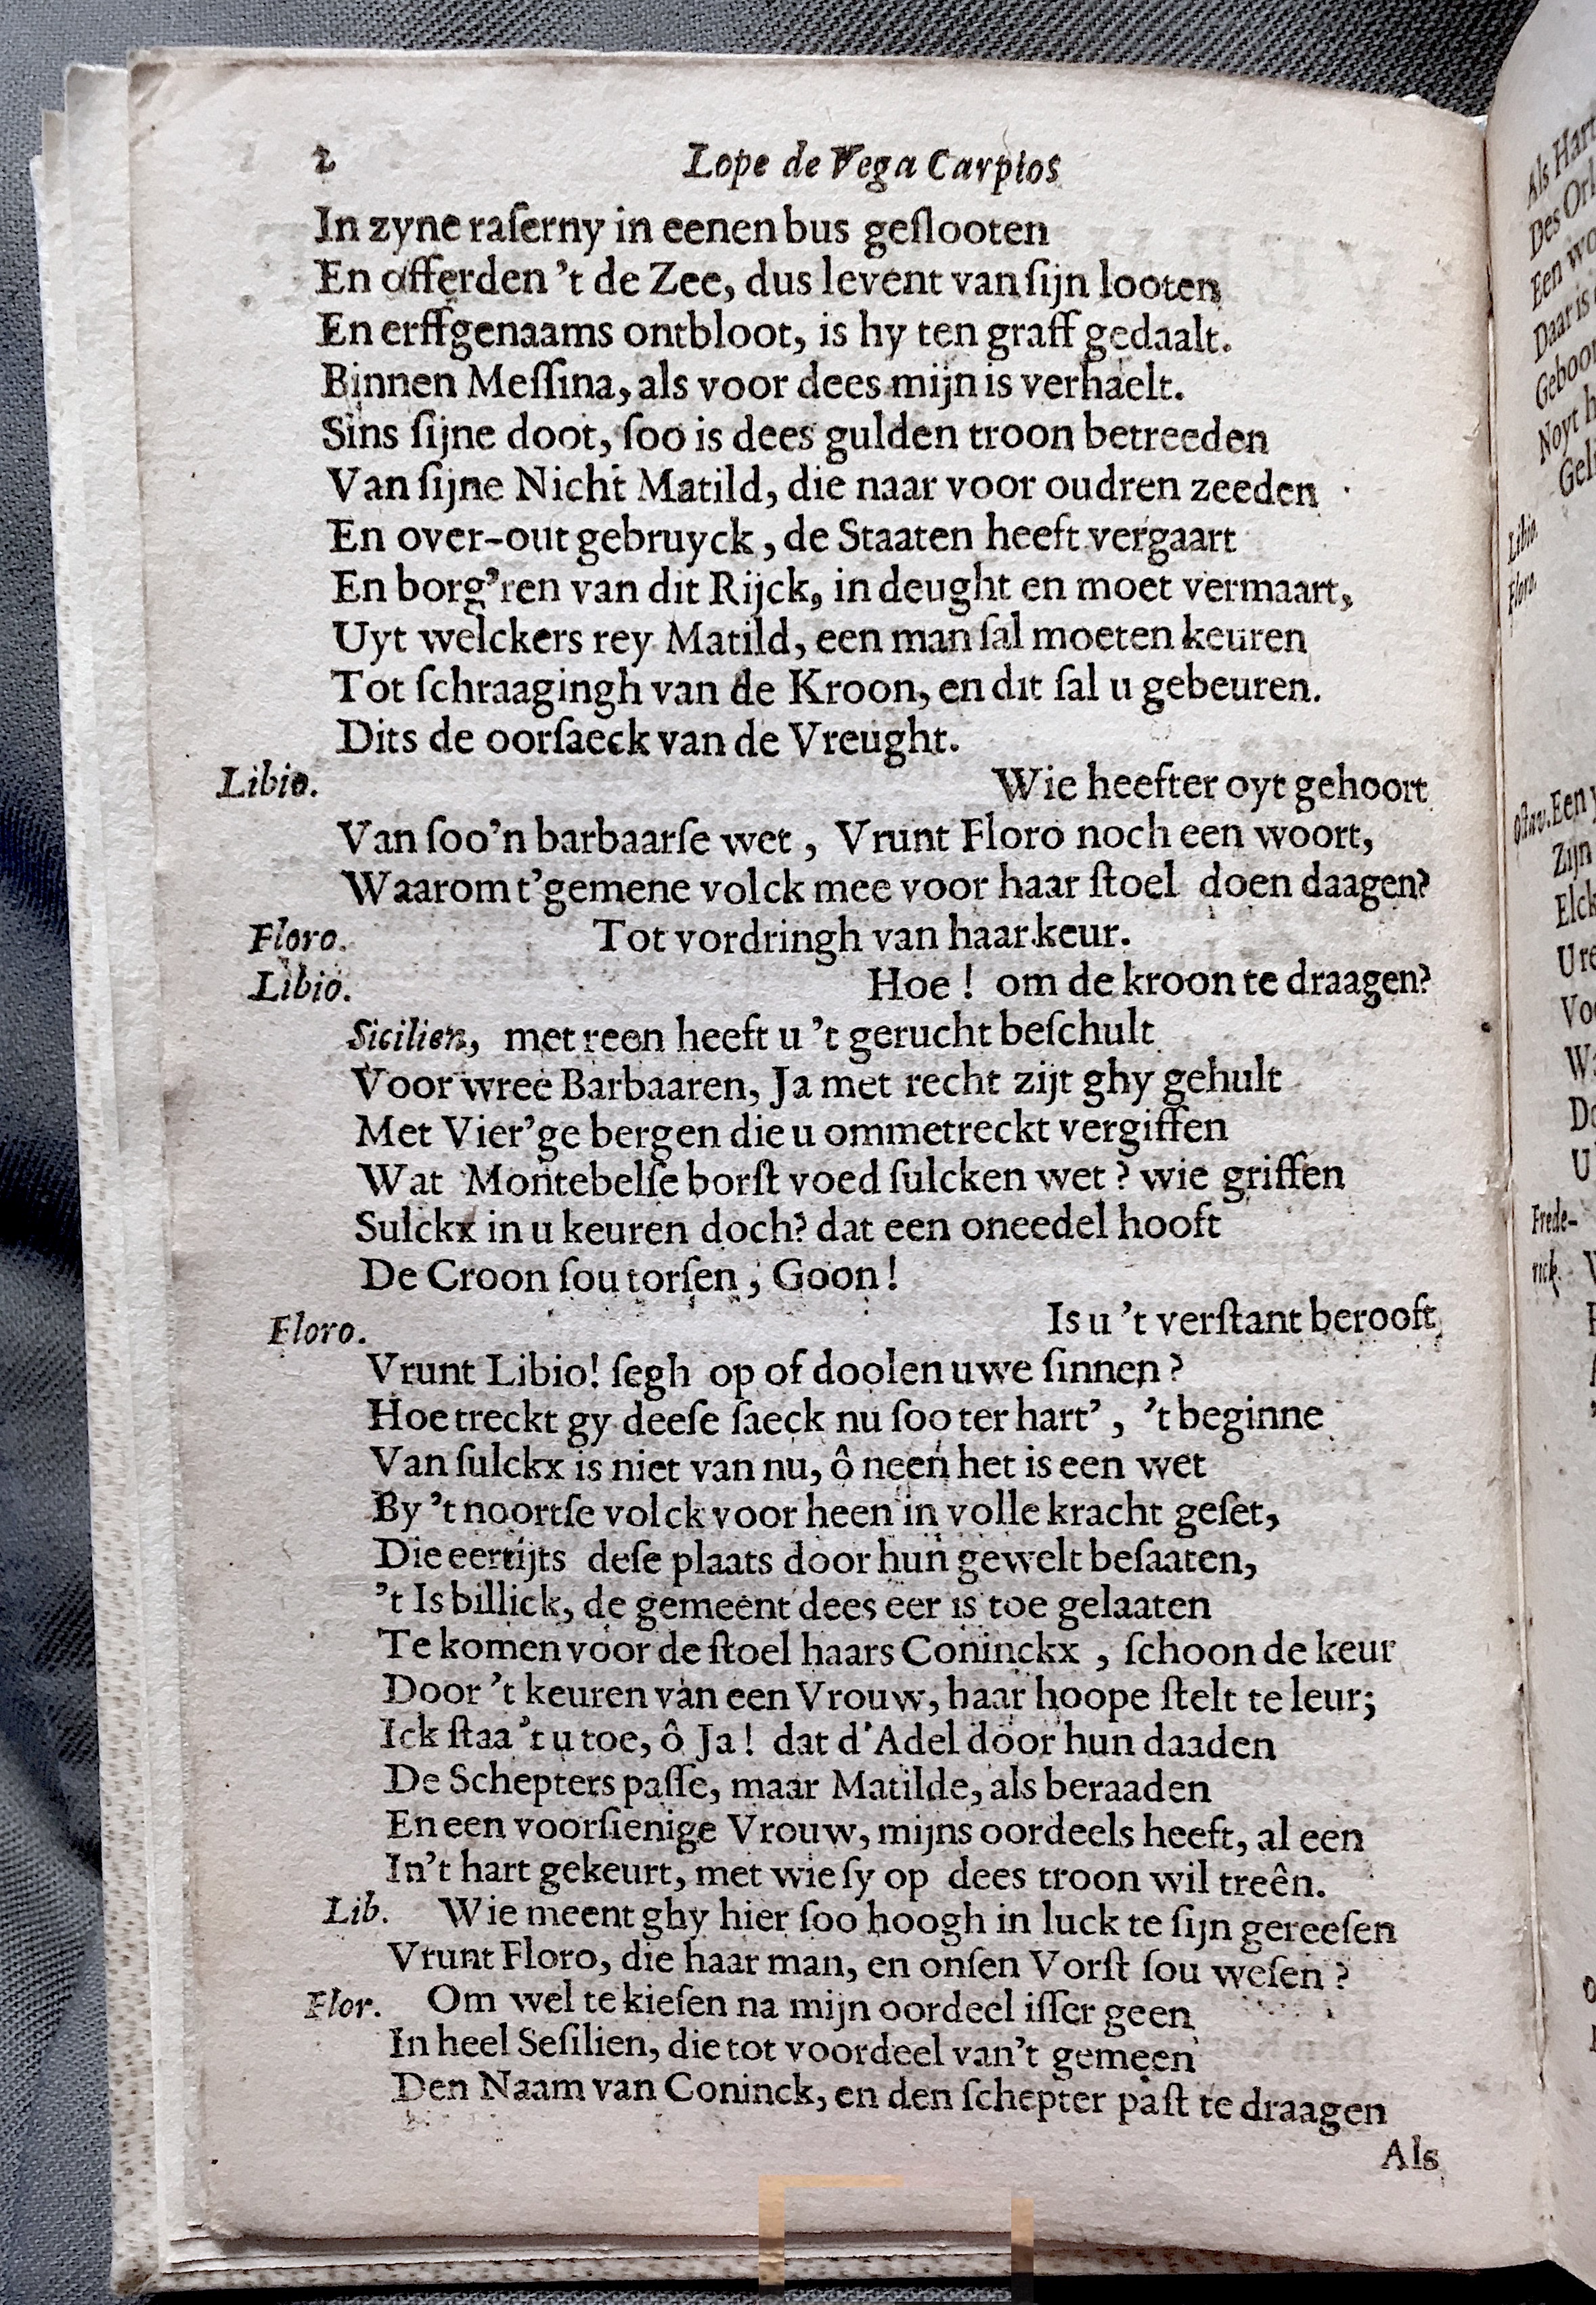 2 Lope de Vega Carpios
In zyne raſerny in eenen bus geſlooten
En offerden 't de Zee, dus levent van ſijn looten
En erffgenaams ontbloot, is hy ten graff gedaalt.
Binnen Meſſina, als voor dees mijn is verhaelt.
Sins ſijne doot, ſoo is dees gulden troon betreeden
Van ſijne Nicht Matild, die naar voor oudren zeeden
En over-out gebruyck, de Staaten heeft vergaart
En borg'ren van dit Rijck, in deught en moet vermaart,
Uyt welckers rey Matild, een man ſal moeten keuren
Tot ſchraagingh van de Kroon, en dit ſal u gebeuren.
Dits de oorſaeck van de Vreught.
Libio. Wie heefter oyt gehoort
Van ſoo'n barbaarſe wet, Vrunt Floro noch een woort,
Waarom t'gemene volck mee voor haar ſtoel doen daagen?
Floro. Tot vordringh van haar keur.
Libio. Hoe! om de kroon te draagen?
Sicilien, met reen heeft u 't gerucht beſchult
Voor wree Barbaaren, Ja met recht zijt ghy gehult
Met Vier'ge bergen die u ommetreckt vergiffen
Wat Montebelſe borſt voed ſulcken wet? wie griffen
Sulckx in u keuren doch? dat een oneedel hooft
De Croon ſou torſen, Goon!
Floro. Is u 't verſtant berooft,
Vrunt Libio! ſegh op of doolen uwe ſinnen?
Hoe treckt gy deeſe ſaeck nu ſoo ter hart', 't beginne
Van ſulckx is niet van nu, ô neen het is een wet
By 't noortſe volck voor heen in volle kracht geſet,
Die eertijts deſe plaats door hun gewelt beſaaten,
't Is billick, de gemeent dees eer is toe gelaaten
Te komen voor de ſtoel haars Coninckx, ſchoon de keur
Door 't keuren van een Vrouw, haar hoope ſtelt te leur;
Ick ſtaa 't u toe, ô Ja! dat d'Adel door hun daaden
De Schepters paſſe, maar Matilde, als beraaden
En een voorſienige Vrouw, mijns oordeels heeft, al een
In't hart gekeurt, met wie ſy op dees troon wil treên.
Lib. Wie meent ghy hier ſoo hoogh in luck te ſijn gereeſen
Vrunt Floro, die haar man, en onſen Vorſt ſou weſen?
Flor. Om wel te kieſen na mijn oordeel iſſer geen
In heel Seſilien, die tot voordeel van't gemeen
Den Naam van Coninck, en den ſchepter paſt te draagen
Als
Als Hart
Des Orl
Een wo
Daar is
Geboor
Noyt h
Libio.
Floro.
Octav. Een
Zijn
Elck
Ure
Frede-
rick.